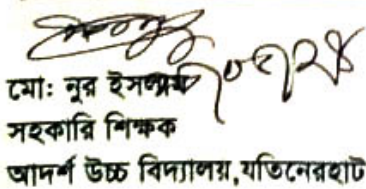 মো: নুর ইসলাম
সহকারি শিক্ষক
আদর্শ উচ্চ বিদ্যালয়,যতিনেরহাট